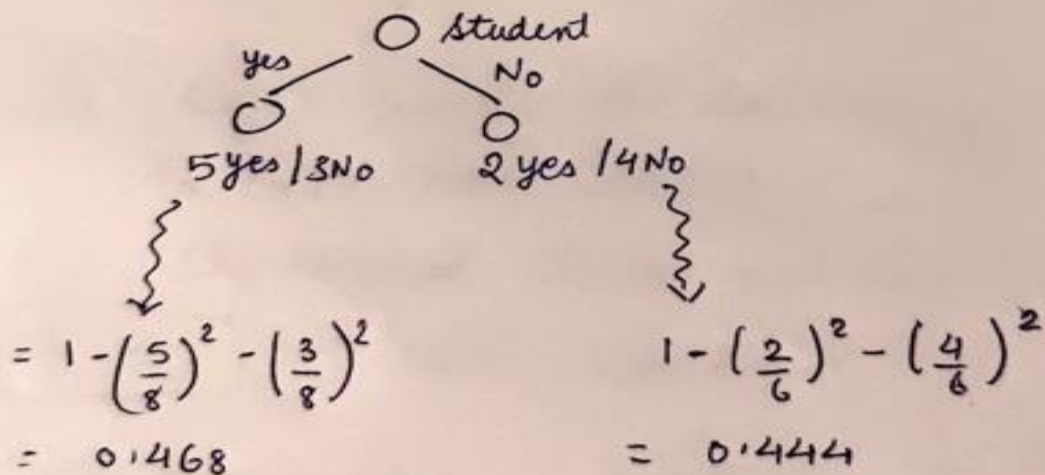 Student
yes No
5 yes / 3 No 2 yes / 4 No
= 1 - (5/8)² - (3/8)² 1 - (2/6)² - (4/6)²
= 0.468 = 0.444